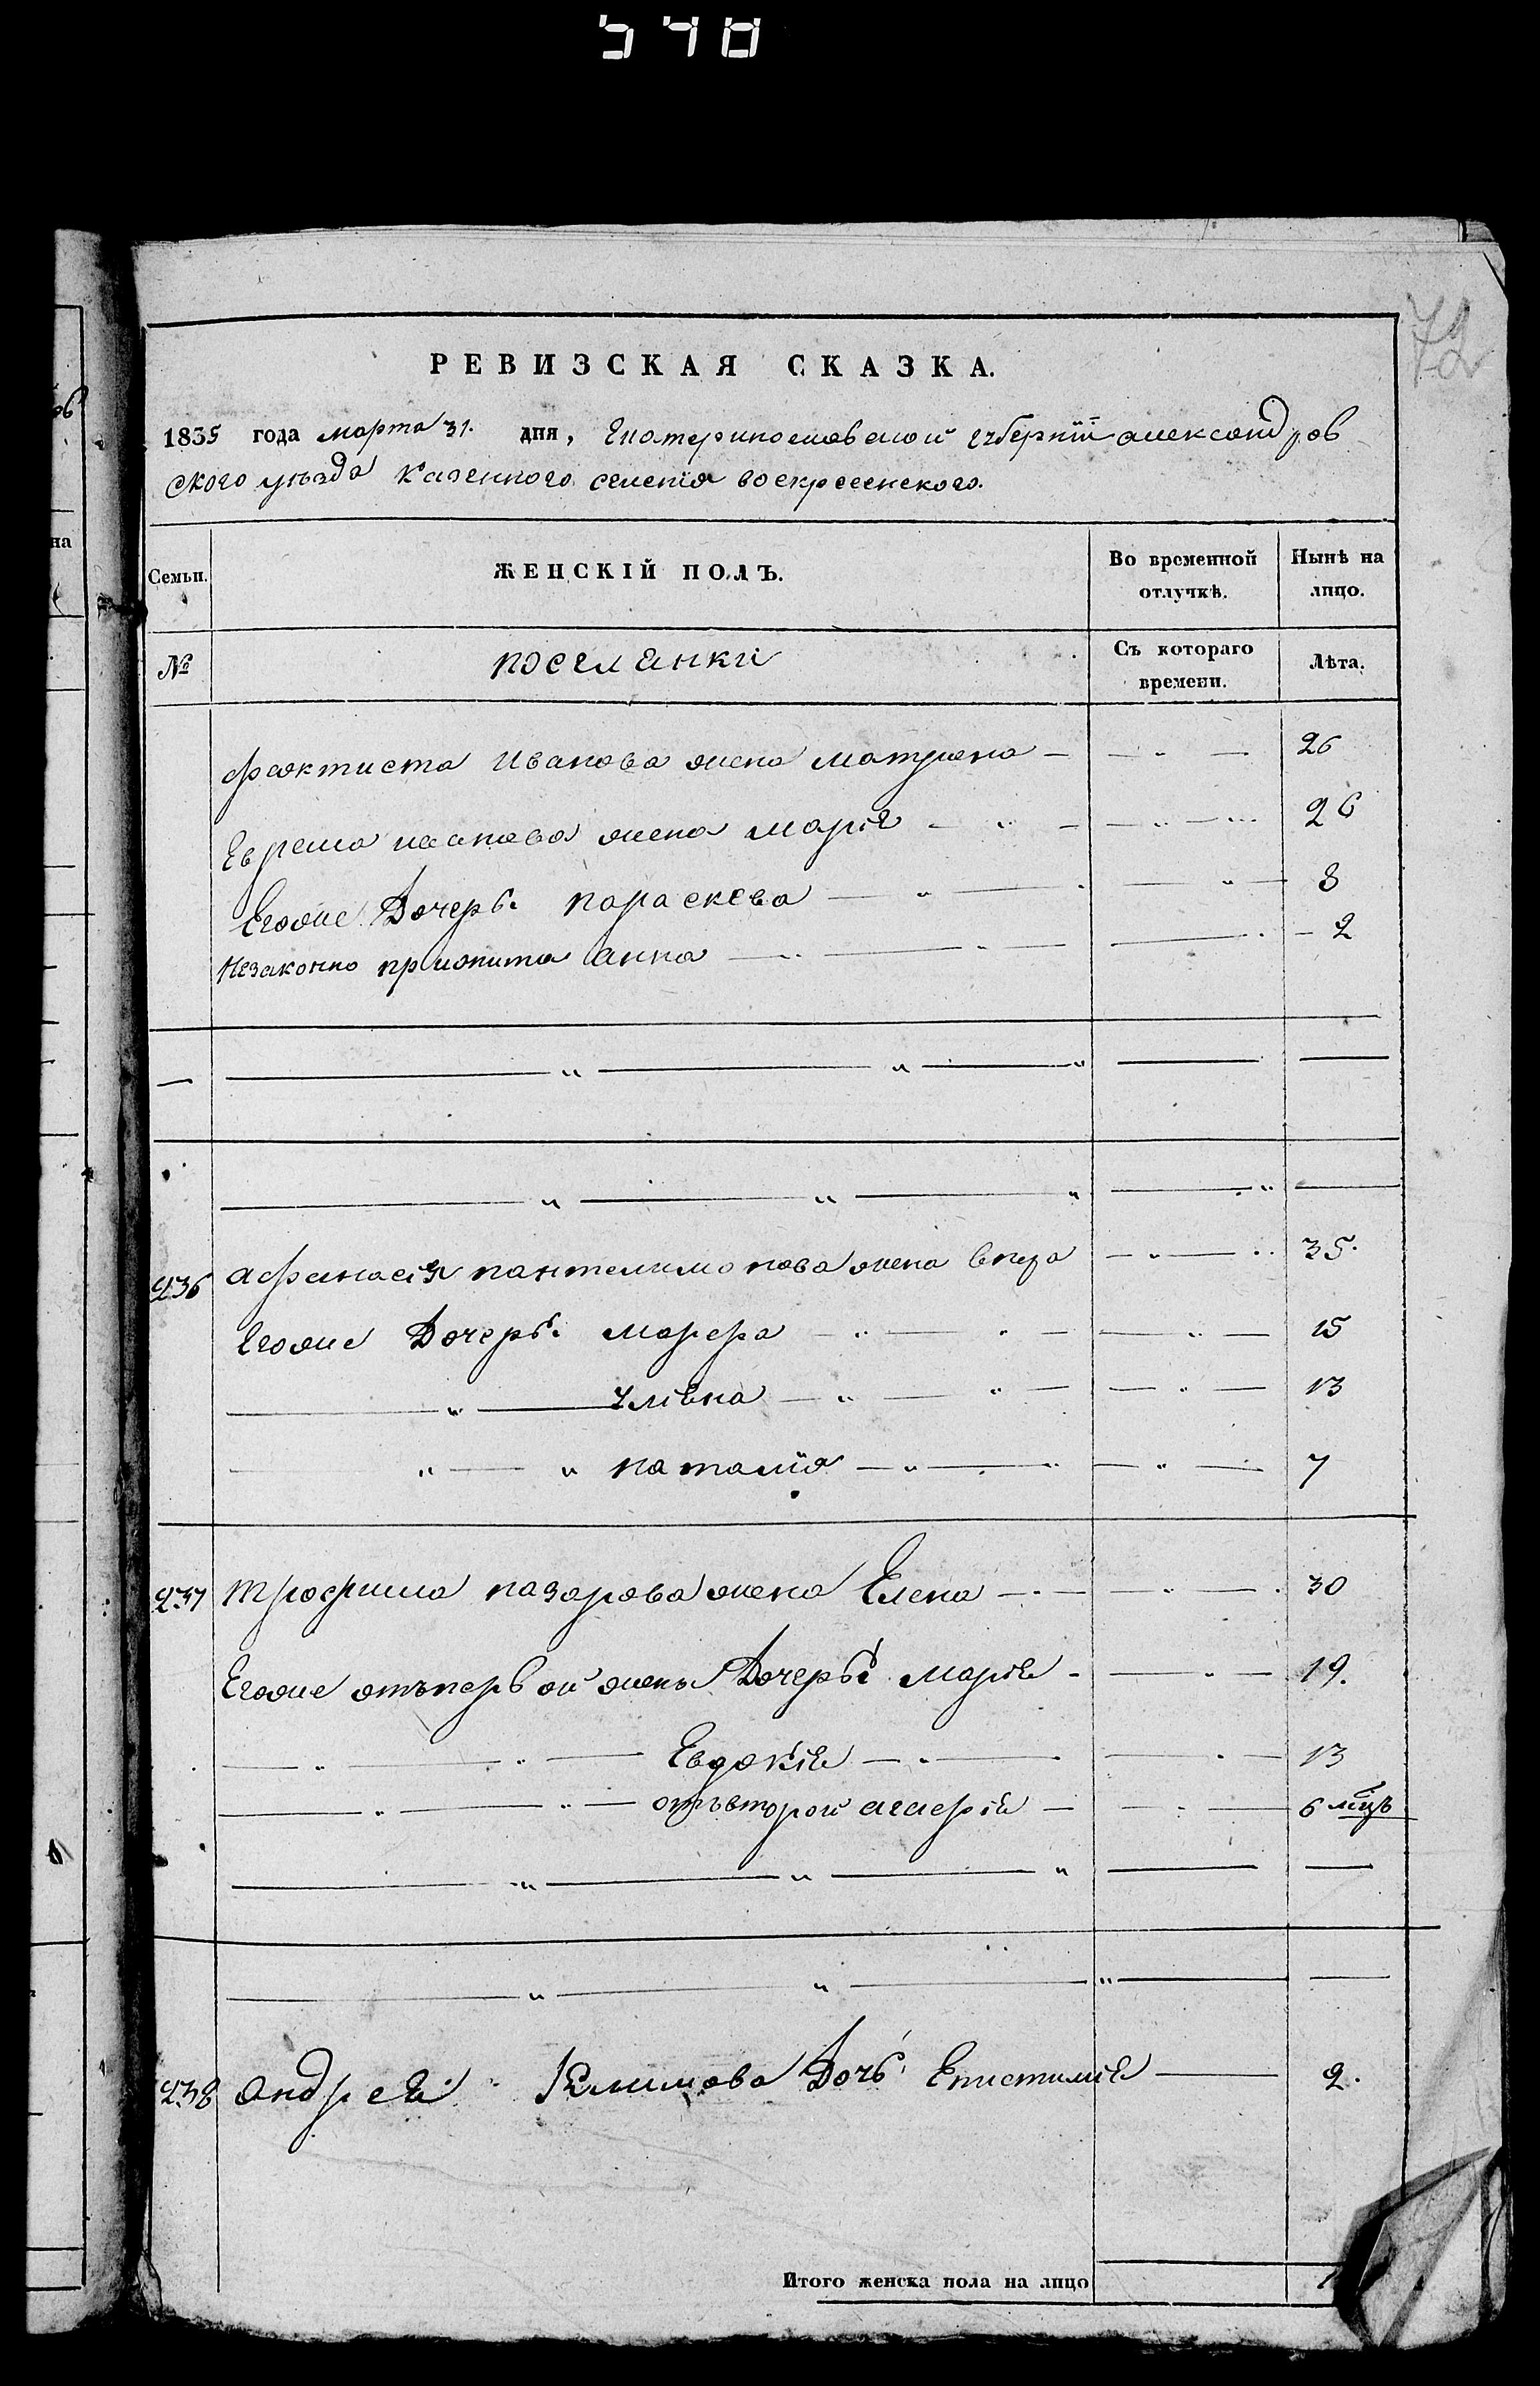 540
72
РЕВИЗСКАЯ СКАЗКА.
1835 года марта 31. дня, Екатеринославской губернїи александров
ского уѣзда казенного селенїя воскресенского.
Семьи. ЖЕНСКІЙ ПОЛЪ. Во временной отлучкѣ. Нынѣ на лицо.
№ поселянки Съ котораго времени. Лѣта.
феоктиста иванова жена матрена 26
Ефрема иванова жена марія 26
Егоже дочерь параскева 8
незаконно прижита анна 2
236 афанасія пантелимонова жена вера 35.
Егоже дочерь марфа 15
улияна 13
наталїя 7
237 трофима назарова жена Елена 30
Егоже отъпервой жены дочерьи марія 19.
Евдокія 13
отъвторой агафія 6 мцъ
238 андрея Климова дочь Епистимія 2.
Итого женска пола на лицо